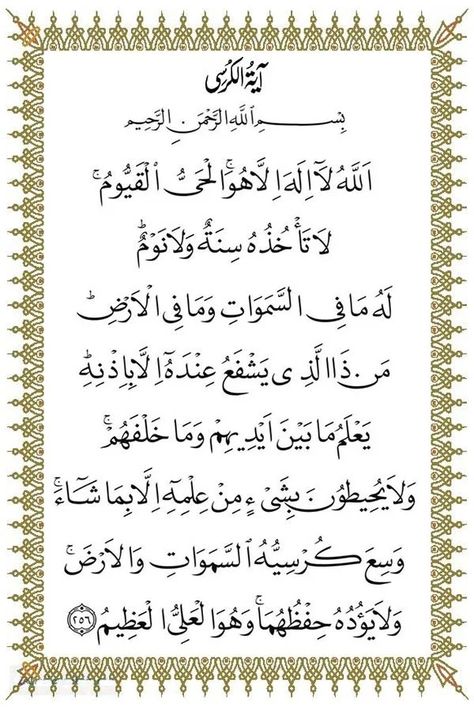 آيَةُ الْكُرْسِى
بِسْمِ اللّٰهِ الرَّحْمٰنِ الرَّحِيمِ
اَللّٰهُ لَآ اِلٰهَ اِلَّا هُوَۚ اَلْحَىُّ الْقَيُّومُۚ
لَا تَأْخُذُهُ سِنَةٌ وَلَا نَوْمٌؕ
لَهُ مَا فِى السَّمٰوَاتِ وَمَا فِى الْاَرْضِؕ
مَنْ ذَا الَّذِى يَشْفَعُ عِنْدَهُٓ اِلَّا بِاِذْنِهِؕ
يَعْلَمُ مَا بَيْنَ اَيْدِيهِمْ وَمَا خَلْفَهُمْۚ
وَلَا يُحِيطُونَ بِشَىْءٍ مِنْ عِلْمِهِٓ اِلَّا بِمَا شَٓاءَۚ
وَسِعَ كُرْسِيُّهُ السَّمٰوَاتِ وَالْاَرْضَۚ
وَلَا يَؤُدُهُ حِفْظُهُمَاۚ وَهُوَ الْعَلِىُّ الْعَظِيمُ ﴿٢٥٦﴾